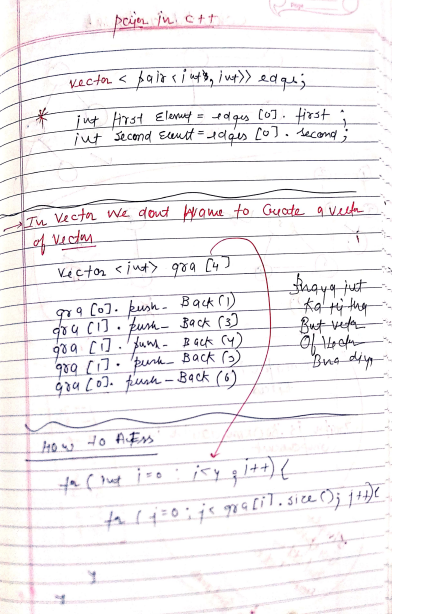 pair in c++
vector < pair < int, int>> edges;
* int first Element = edges [0]. first ;
int second Element = edges [0]. second ;
→ In Vector We dont Have to Create a vector
of vector
vector <int> gra [4]
gra [0]. push_ Back (1)
gra [1]. push_ Back (3)
gra [1]. push_ Back (4)
gra [1]. push_ Back (2)
gra [0]. push_ Back (6)
Bnaya
But vector
Of Vector
Bna diya
How to Acess
for ( int i=0 ; i<4 ; i++) {
for ( j=0 ; j< gra[i]. size(); j++){
}
}